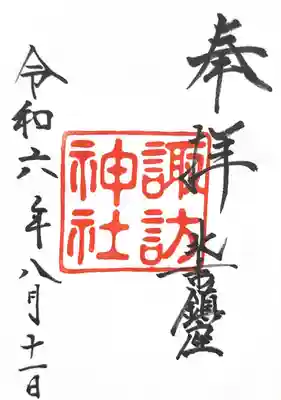 奉拝
鎮座
諏訪
神社
令和六年八月十一日